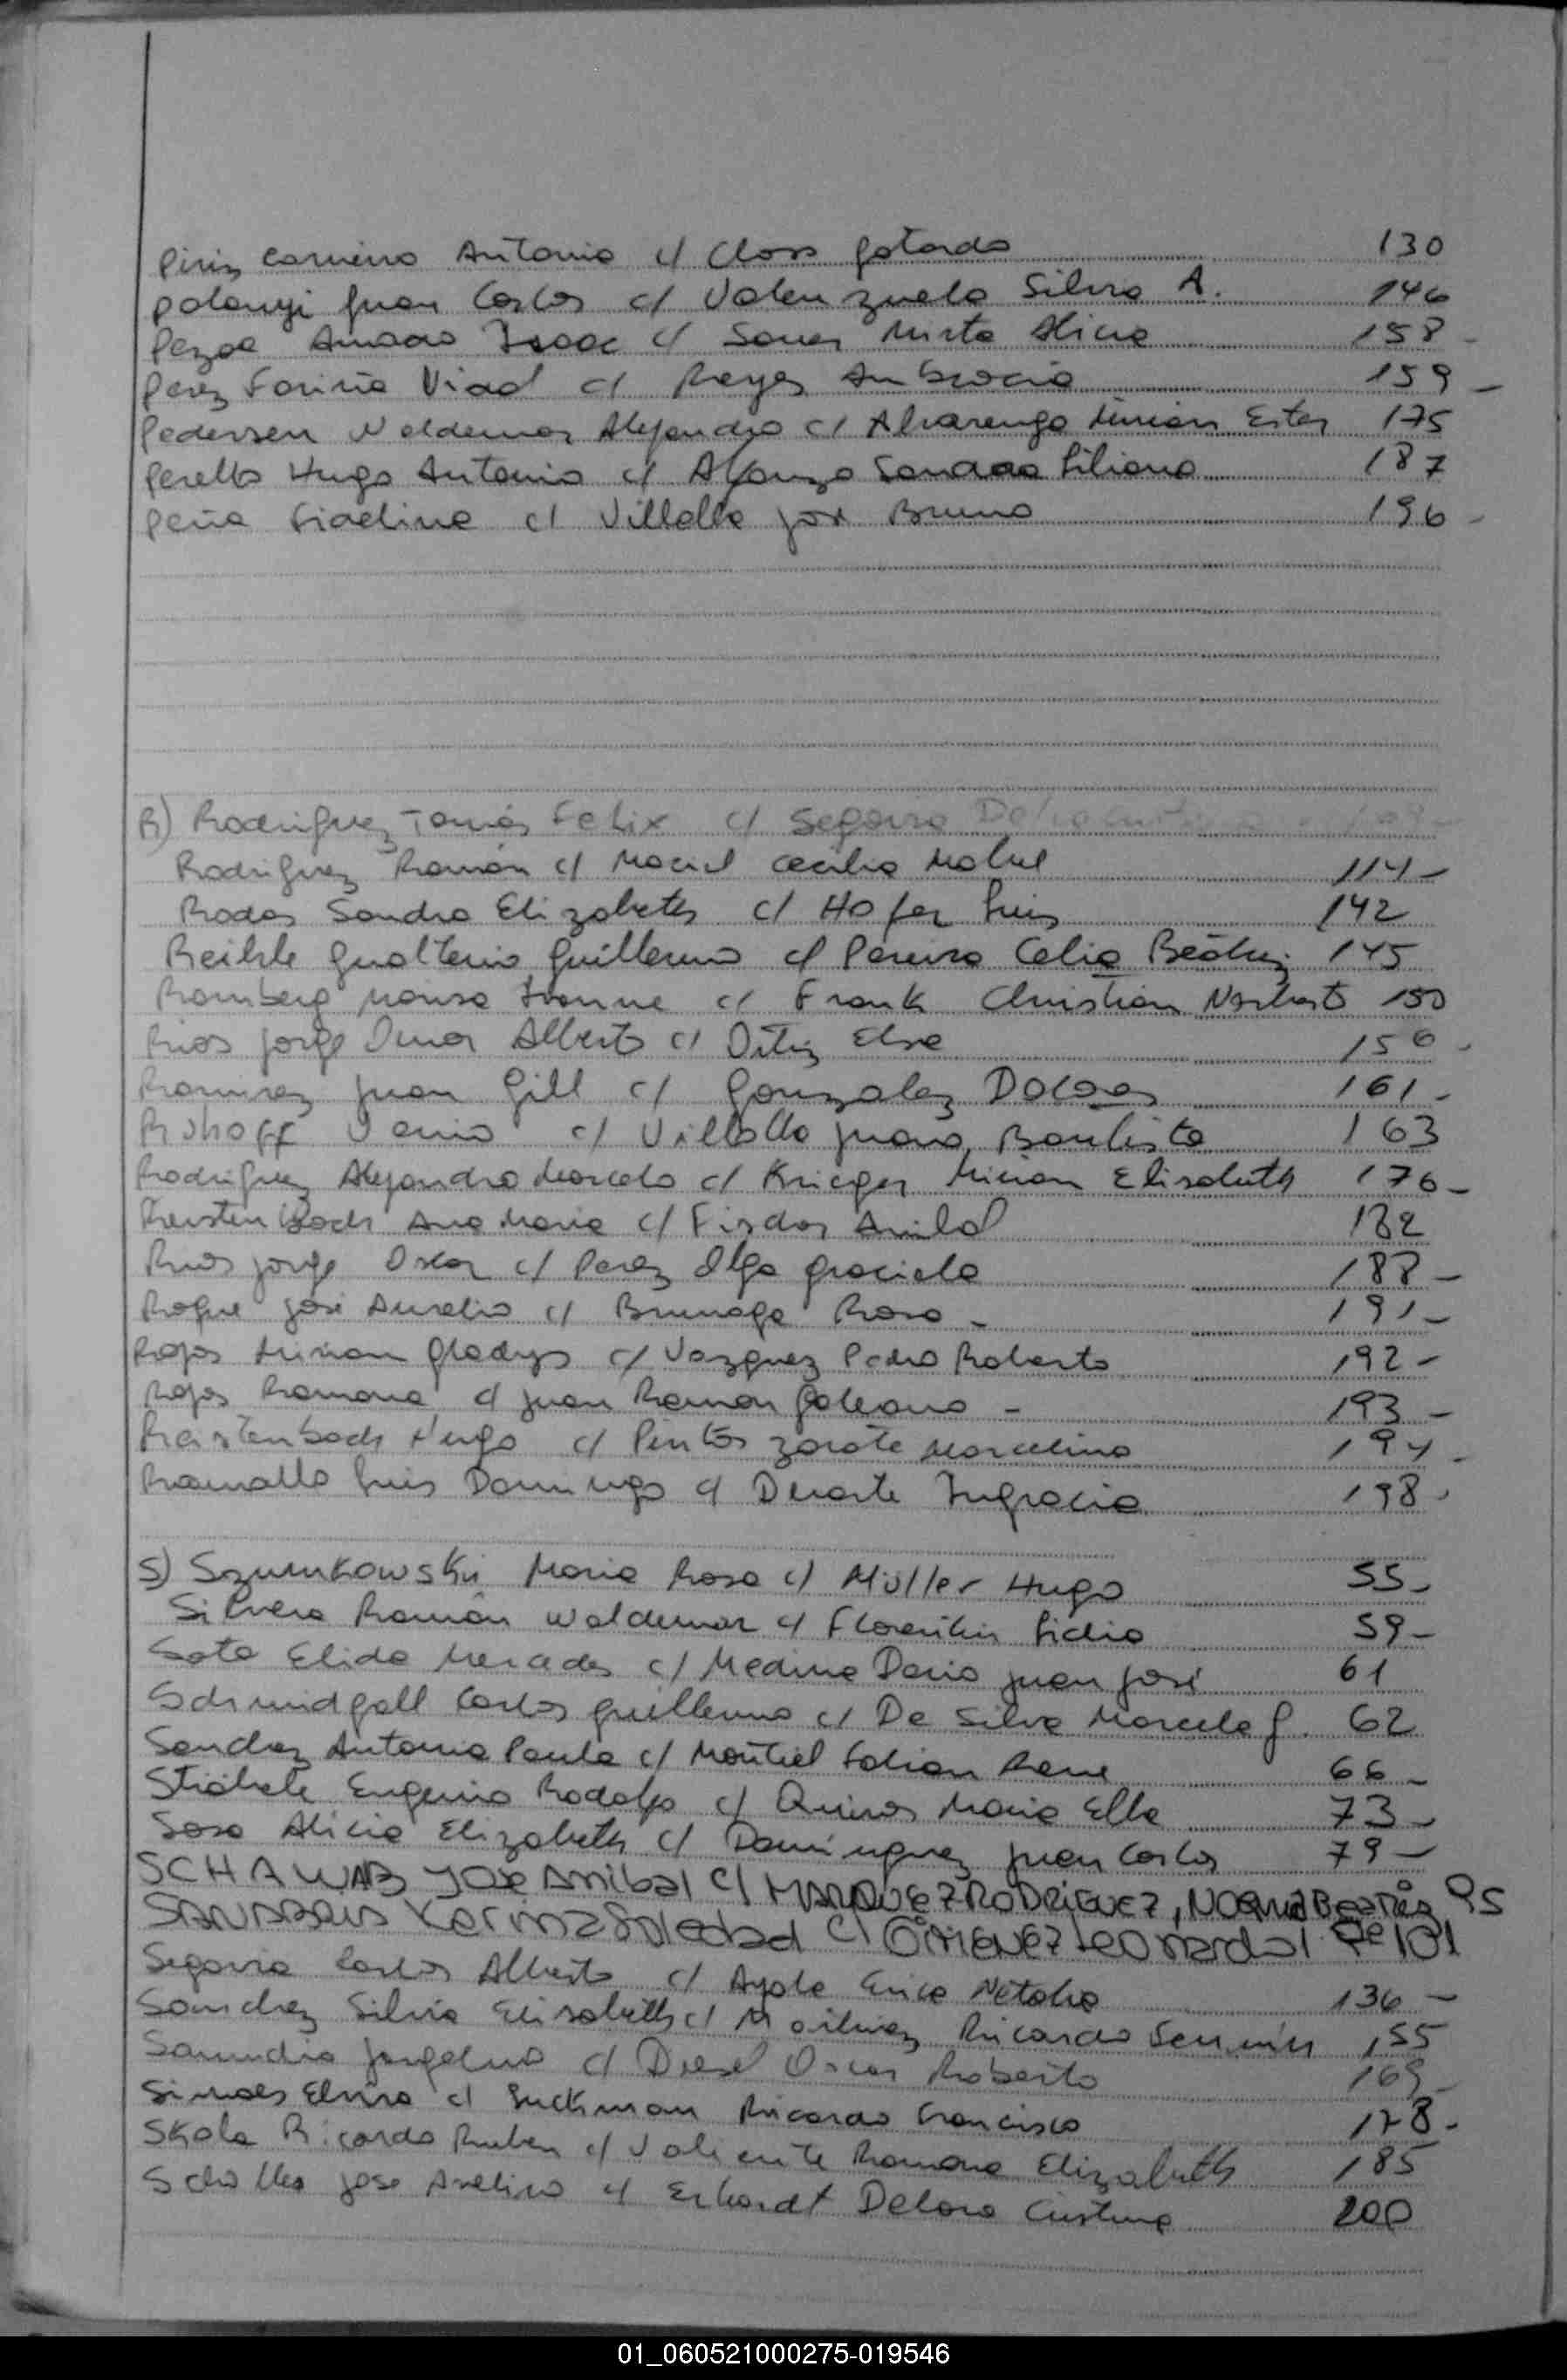 Piris Carneiro Antonio c/ Closs Gotardo 130
Polanyi Juan Carlos c/ Valenzuela Silvia A. 146
Pezoa Amado Isaac c/ Mirta Alicia 158 -
Perez Fariña Vidal c/ Reyes Ambrocia 159 -
Pedersen Waldemar Alejandro c/ Alvarenga Miriam Ester 175
Perello Hugo Antonio c/ Afonzo Sandra Liliana 187
Peña Fidelina c/ Villalba José Bruno 196 -
R) Rodriguez Tomás Felix c/ Segovia
Rodriguez Ramón c/ Maciel Cecilia Mabel 114 -
Rodas Sandra Elizabeth c/ Hofer Luis 142
Guillermo c/ Pereira Celia Beatriz 145
Romberg Ivonne c/ Frank Christian Norberto 150
Rios Jorge Omar Alberto c/ Ortiz Elsa 156 -
Ramirez Juan Gill c/ Gonzalez Dolores 161 -
Ruhoff c/ Villalba Juana Bautista 163
Rodriguez Alejandro Marcelo c/ Krieger Miriam Elisabeth 176 -
Ana Maria c/ 182
Rios Jorge Oscar c/ Perez Olga Graciela 188 -
Roque José Aurelio c/ Rosa - 191 -
Rojas Miriam Gladys c/ Vazquez Pedro Roberto 192 -
Rojas Ramona c/ Juan Ramon Galeano - 193 -
Hugo c/ Pintos Zarate Marcelina 194 -
Ramallo Luis Domingo c/ Duarte Ingracia 198 -
S) Szumkowski Maria Rosa c/ Müller Hugo 55 -
Silvera Ramón Waldemar c/ Florentin Lidia 59 -
Soto Elida Mercedes c/ Medina Dario Juan José 61
Schmidgall Carlos Guillermo c/ De Silva Marcela G. 62
Sanchez Antonia Paula c/ Montiel Fabian Rene 66 -
Ströhele Eugenio Rodolfo c/ Quiros Maria Elba 73 -
Sosa Alicia Elizabeth c/ Dominguez Juan Carlos 79 -
SCHAWAB Jose Anibal c/ MARQUEZ RODRIGUEZ, Beatriz 95
Karina Soledad c/ Leonardo 101
Segovia Carlos Alberto c/ Ayala Erica Natalia 136 -
Sanchez Silvia Elisabeth c/ Martinez Ricardo Fermin 155
Jorgelina c/ Diesel Oscar Roberto 169 -
Simoes Elvira c/ Ricardo Francisco 178 -
Skola Ricardo Ruben c/ Valiente Ramona Elizabeth 185
Jose Avelino c/ Erhardt Debora Cristina 200
01_060521000275-019546